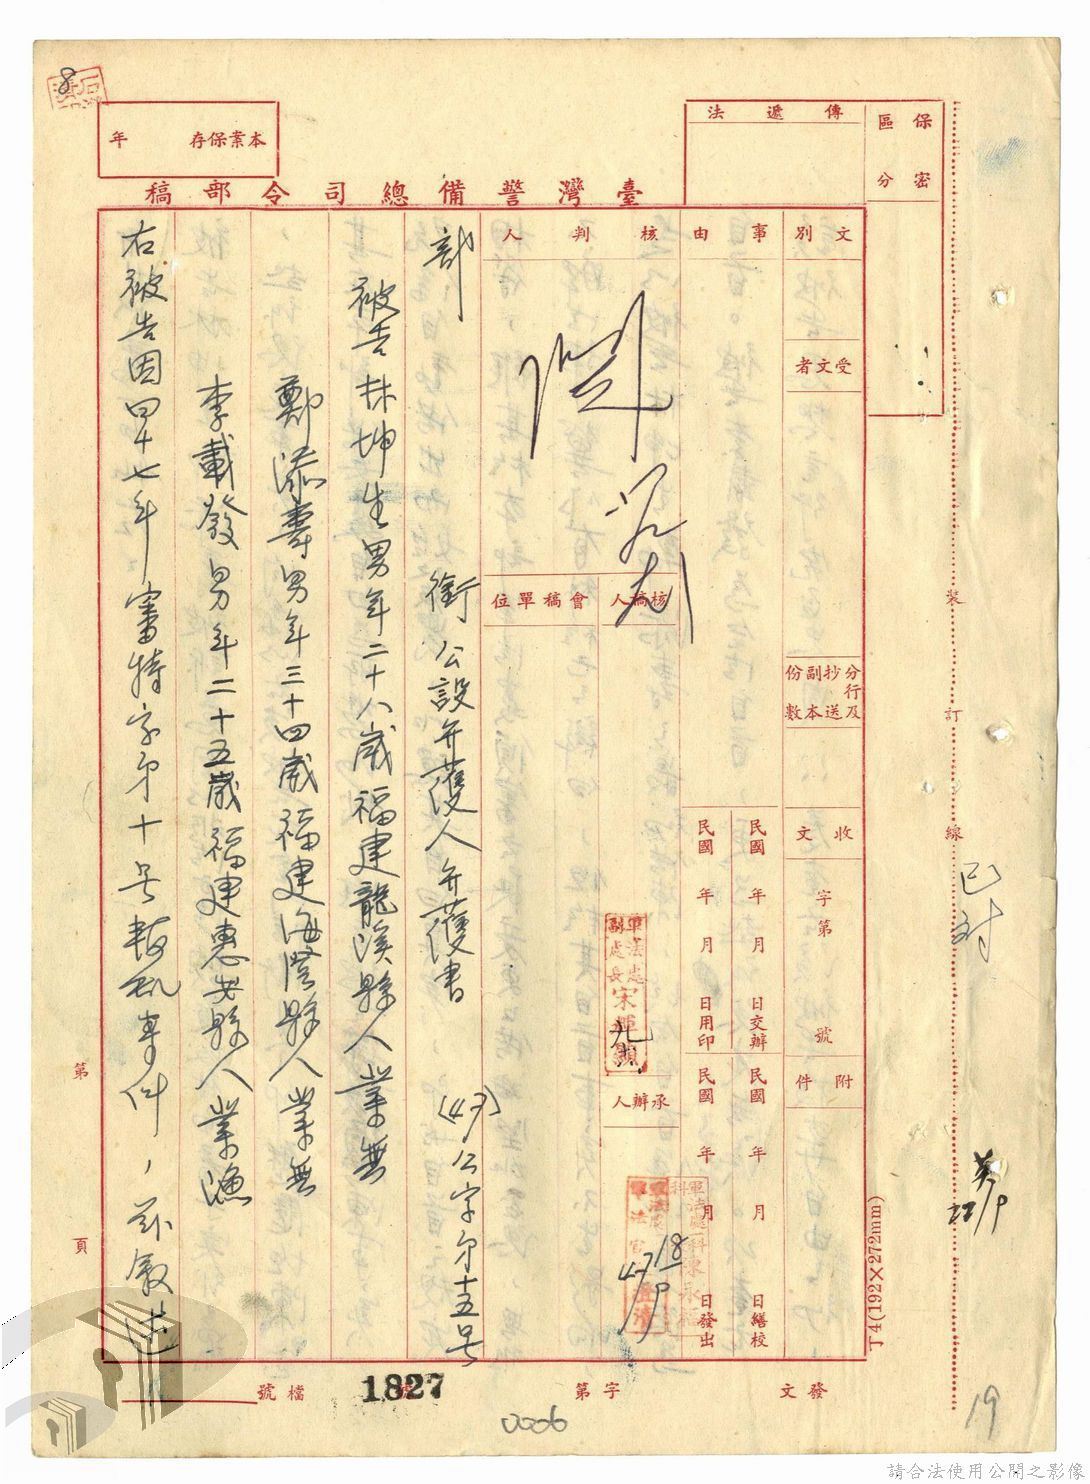 8
本案保存 年
傳遞法
保密區分
臺灣警備總司令部稿
文別
受文者
分行及抄送副本份數
收文
字第 號
附件
事由
民國 年 月 日交辦
民國 年 月 日繕校
民國 年 月 日用印
民國 年 月 日發出
核判人
核稿人
會稿單位
承辦人
軍法處副處長宋
九
47 18/9
裝訂線
已對
計
銜公設辯護人辯護書 (47)公字第十五號
被告林坤生男年二十八歲福建龍溪縣人業無
鄭添壽男年三十四歲福建海澄縣人業無
李載發男年二十五歲福建惠安縣人業漁
右被告因四十七年審特字第十號叛亂事件,茲敘述
第 頁
丁4(192×272mm)
發文 字第 號
檔號
1827
0006
19
請合法使用公開之影像